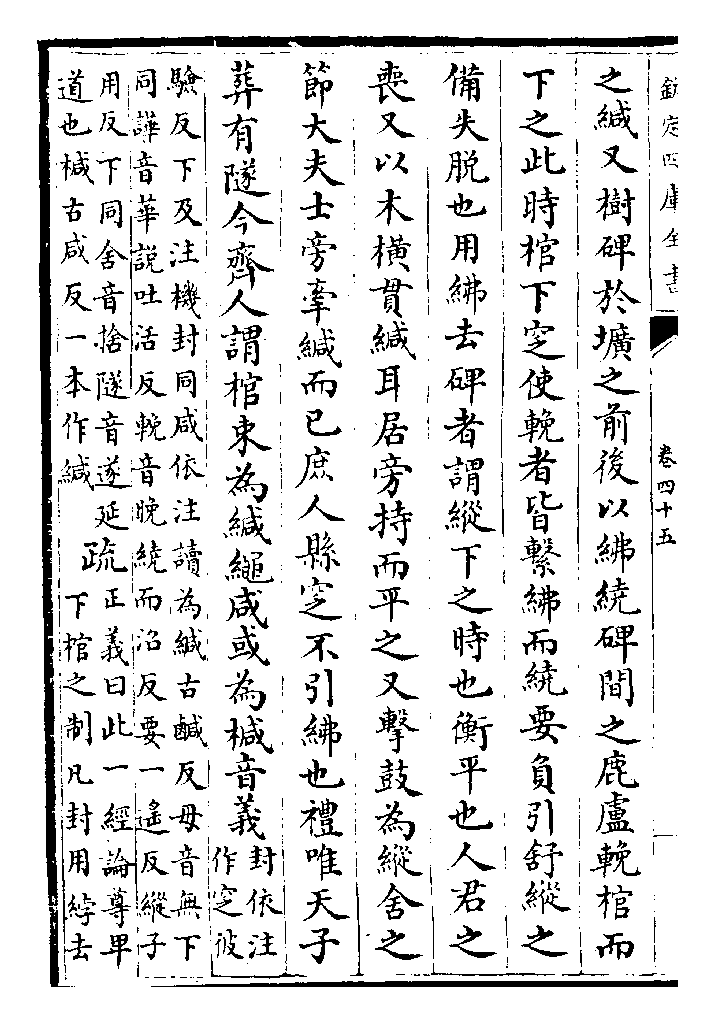 欽定四庫全書
卷四十五
之緘又樹碑於壙之前後以紼繞碑間之鹿盧輓棺而
下之此時棺下窆使輓者皆繫紼而繞要負引舒縱之
備失脫也用紼去碑者謂縱下之時也衡平也人君之
喪又以木橫貫緘耳居旁持而平之又擊鼓為縱舍之
節大夫士旁牽緘而已庶人縣窆不引紼也禮唯天子
葬有隧今齊人謂棺束為緘繩咸或為椷音義
封依注
作窆彼
驗反下及注機封同咸依注讀為緘古鹹反毋音無下
同譁音華說吐活反輓音晚繞而沼反要一遙反縱子
用反下同舍音捨隧音遂延
道也椷古咸反一本作緘
疏
正義曰此一經論尊卑
下棺之制凡封用綍去